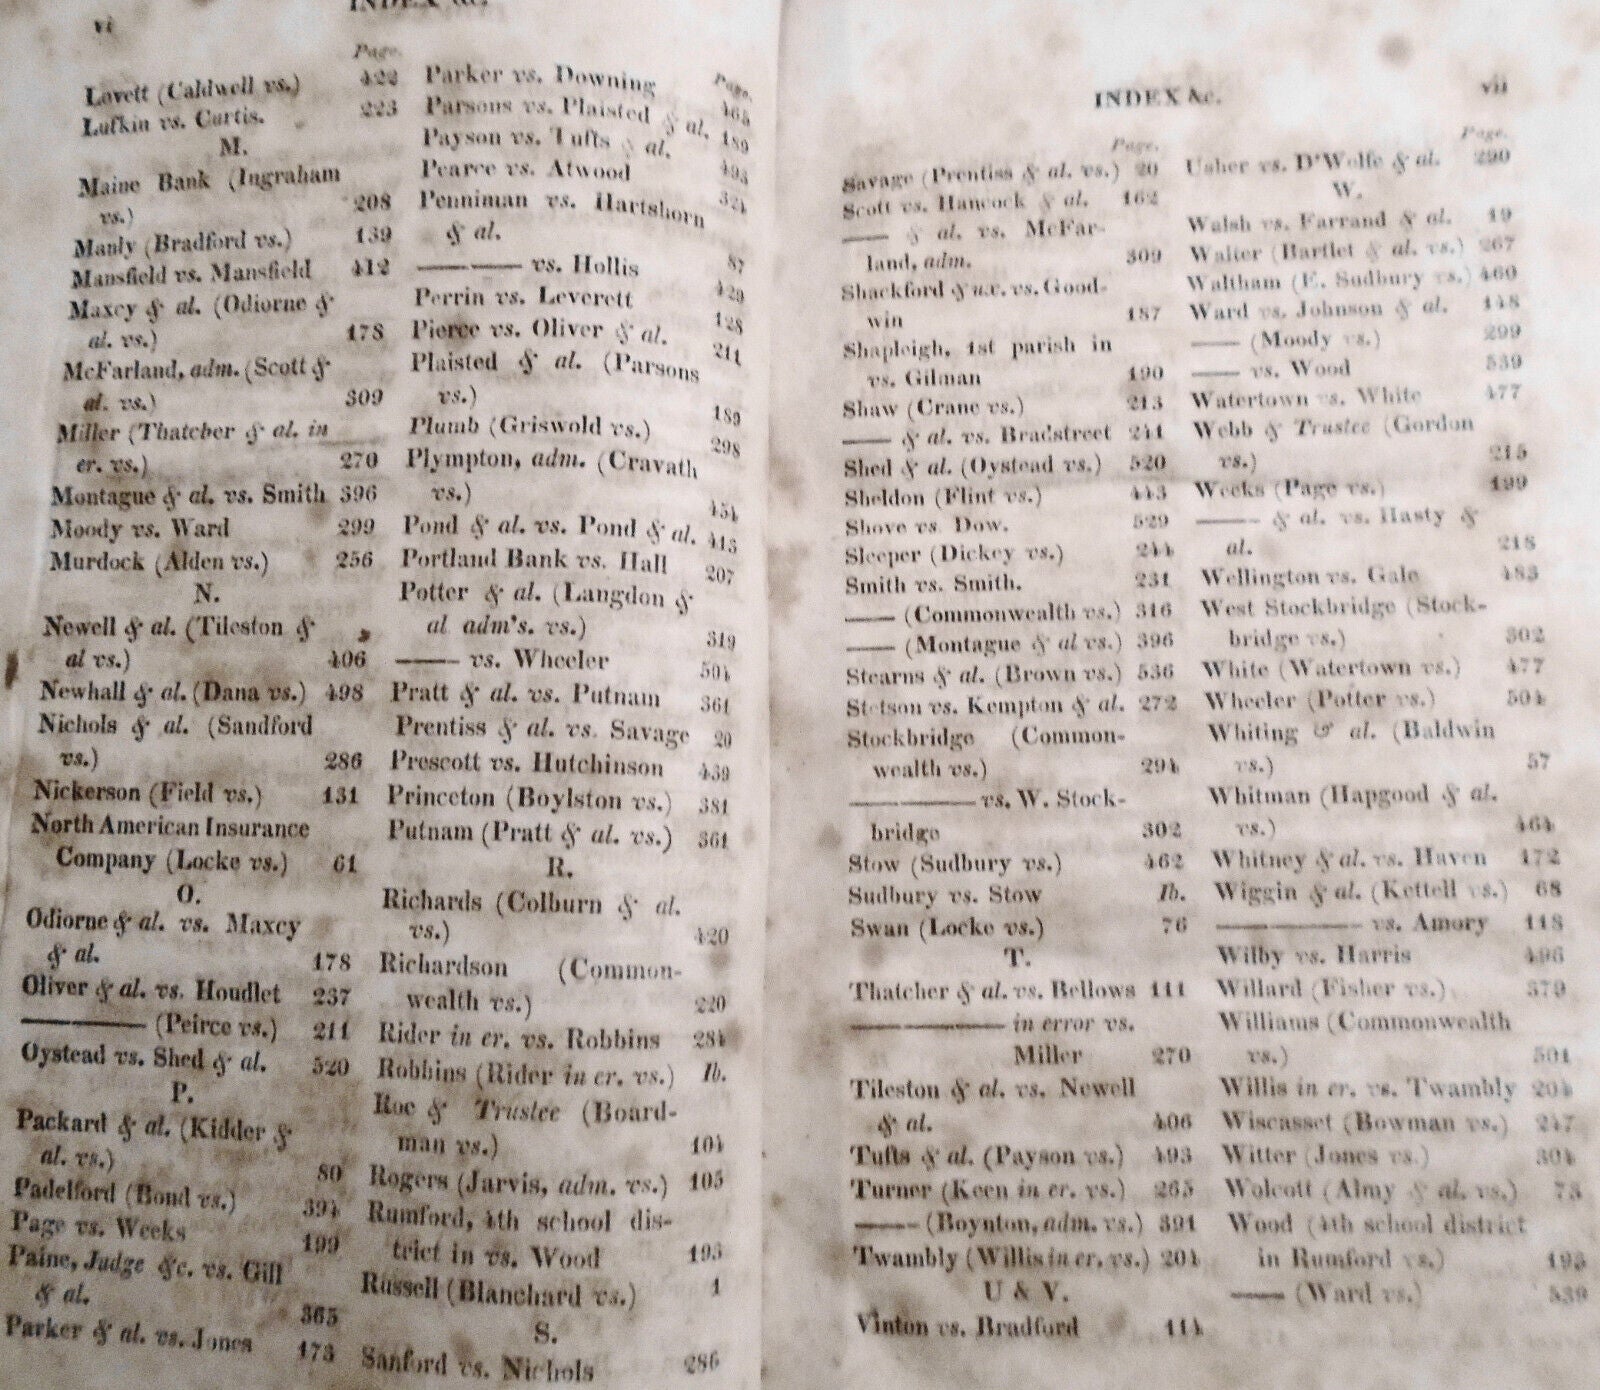 vi
INDEX &c.
Page.
Lovett (Caldwell vs.) 422
Lufkin vs. Curtis. 223
M.
Maine Bank (Ingraham
vs.) 208
Manly (Bradford vs.) 139
Mansfield vs. Mansfield 412
Maxcy & al. (Odiorne &
al. vs.) 178
McFarland, adm. (Scott &
al. vs.) 309
Miller (Thatcher & al. in
er. vs.) 270
Montague & al. vs. Smith 396
Moody vs. Ward 299
Murdock (Alden vs.) 256
N.
Newell & al. (Tileston &
al vs.) 406
Newhall & al. (Dana vs.) 498
Nichols & al. (Sandford
vs.) 286
Nickerson (Field vs.) 131
North American Insurance
Company (Locke vs.) 61
O.
Odiorne & al. vs. Maxcy
& al. 178
Oliver & al. vs. Houdlet 237
——— (Peirce vs.) 211
Oystead vs. Shed & al. 520
P.
Packard & al. (Kidder &
al. vs.) 80
Padelford (Bond vs.) 394
Page vs. Weeks 199
Paine, Judge &c. vs. Gill
& al. 365
Parker & al. vs. Jones 173
Page.
Parker vs. Downing 465
Parsons vs. Plaisted & al. 189
Payson vs. Tufts & al. 493
Pearce vs. Atwood 324
Penniman vs. Hartshorn
& al. 87
—— —— vs. Hollis 429
Perrin vs. Leverett 128
Pierce vs. Oliver & al. 211
Plaisted & al. (Parsons
vs.) 189
Plumb (Griswold vs.) 298
Plympton, adm. (Cravath
vs.) 454
Pond & al. vs. Pond & al. 413
Portland Bank vs. Hall 207
Potter & al. (Langdon &
al adm's. vs.) 319
—— vs. Wheeler 504
Pratt & al. vs. Putnam 361
Prentiss & al. vs. Savage 20
Prescott vs. Hutchinson 439
Princeton (Boylston vs.) 381
Putnam (Pratt & al. vs.) 361
R.
Richards (Colburn & al.
vs.) 420
Richardson (Common-
wealth vs.) 220
Rider in er. vs. Robbins 284
Robbins (Rider in er. vs.) Ib.
Roe & Trustee (Board-
man vs.) 104
Rogers (Jarvis, adm. vs.) 105
Rumford, 4th school dis-
trict in vs. Wood 193
Russell (Blanchard vs.) 1
S.
Sanford vs. Nichols 286
INDEX &c.
vii
Page.
Savage (Prentiss & al. vs.) 20
Scott vs. Hancock & al. 162
—— & al. vs. McFar-
land, adm. 309
Shackford & ux. vs. Good-
win 187
Shapleigh, 1st parish in
vs. Gilman 190
Shaw (Crane vs.) 213
—— & al. vs. Bradstreet 241
Shed & al. (Oystead vs.) 520
Sheldon (Flint vs.) 443
Shove vs. Dow. 529
Sleeper (Dickey vs.) 244
Smith vs. Smith. 231
—— (Commonwealth vs.) 316
—— (Montague & al vs.) 396
Stearns & al. (Brown vs.) 536
Stetson vs. Kempton & al. 272
Stockbridge (Common-
wealth vs.) 294
—— —— vs. W. Stock-
bridge 302
Stow (Sudbury vs.) 462
Sudbury vs. Stow Ib.
Swan (Locke vs.) 76
T.
Thatcher & al. vs. Bellows 111
—— —— in error vs.
Miller 270
Tileston & al. vs. Newell
& al. 406
Tufts & al. (Payson vs.) 493
Turner (Keen in er. vs.) 265
—— (Boynton, adm. vs.) 391
Twambly (Willis in er. vs.) 204
U & V.
Vinton vs. Bradford 114
Page.
Usher vs. D'Wolfe & al. 290
W.
Walsh vs. Farrand & al. 19
Walter (Bartlet & al. vs.) 267
Waltham (E. Sudbury vs.) 460
Ward vs. Johnson & al. 148
—— (Moody vs.) 299
—— vs. Wood 539
Watertown vs. White 477
Webb & Trustee (Gordon
vs.) 215
Weeks (Page vs.) 199
—— & al. vs. Hasty &
al. 218
Wellington vs. Gale 483
West Stockbridge (Stock-
bridge vs.) 302
White (Watertown vs.) 477
Wheeler (Potter vs.) 504
Whiting & al. (Baldwin
vs.) 57
Whitman (Hapgood & al.
vs.) 464
Whitney & al. vs. Haven 172
Wiggin & al. (Kettell vs.) 68
—— —— vs. Amory 118
Wilby vs. Harris 496
Willard (Fisher vs.) 379
Williams (Commonwealth
vs.) 501
Willis in er. vs. Twambly 204
Wiscasset (Bowman vs.) 247
Witter (Jones vs.) 304
Wolcott (Almy & al. vs.) 73
Wood (4th school district
in Rumford vs.) 193
—— (Ward vs.) 539